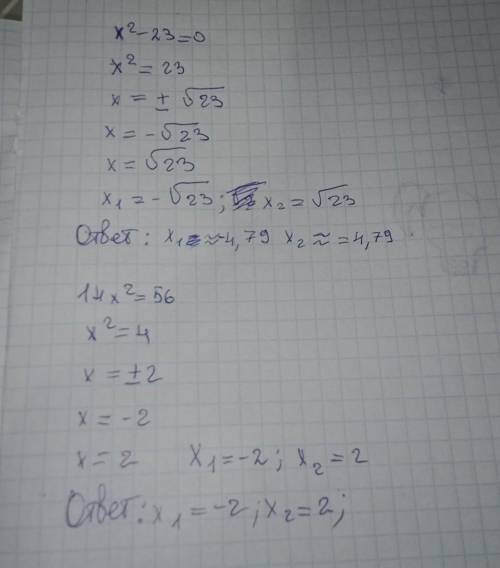 x²-23=0
x²=23
x = ± √23
x = -√23
x = √23
x₁ = -√23; x₂ = √23
Ответ: x₁ ≈ -4,79 x₂ ≈ = 4,79
14x²=56
x²=4
x = ±2
x = -2
x = 2 x₁=-2; x₂=2
Ответ: x₁=-2; x₂=2;